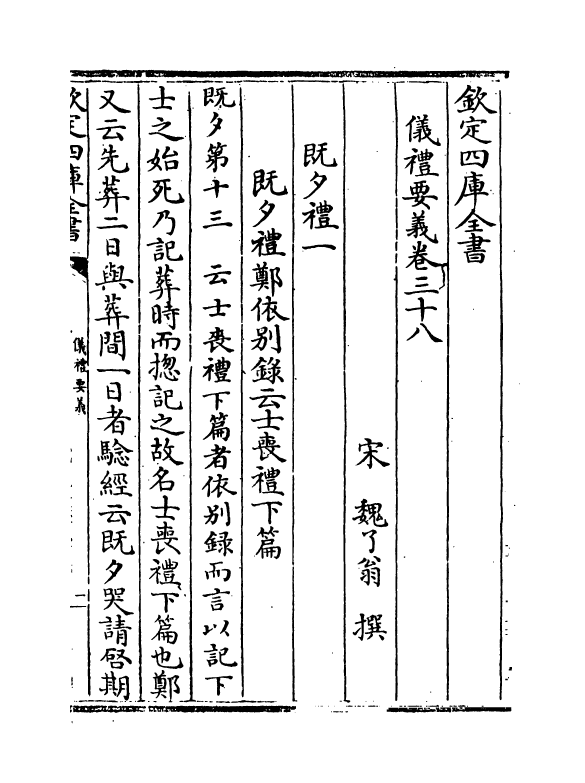 欽定四庫全書
儀禮要義卷三十八
宋 魏了翁 撰
既夕禮一
既夕禮鄭依別錄云士喪禮下篇
既夕第十三 云士喪禮下篇者依别録而言以記下
士之始死乃記葬時而揔記之故名士喪禮下篇也鄭
又云先葬二日與葬間一日者騐經云既夕哭請啓期
欽定四庫全書
儀禮要義